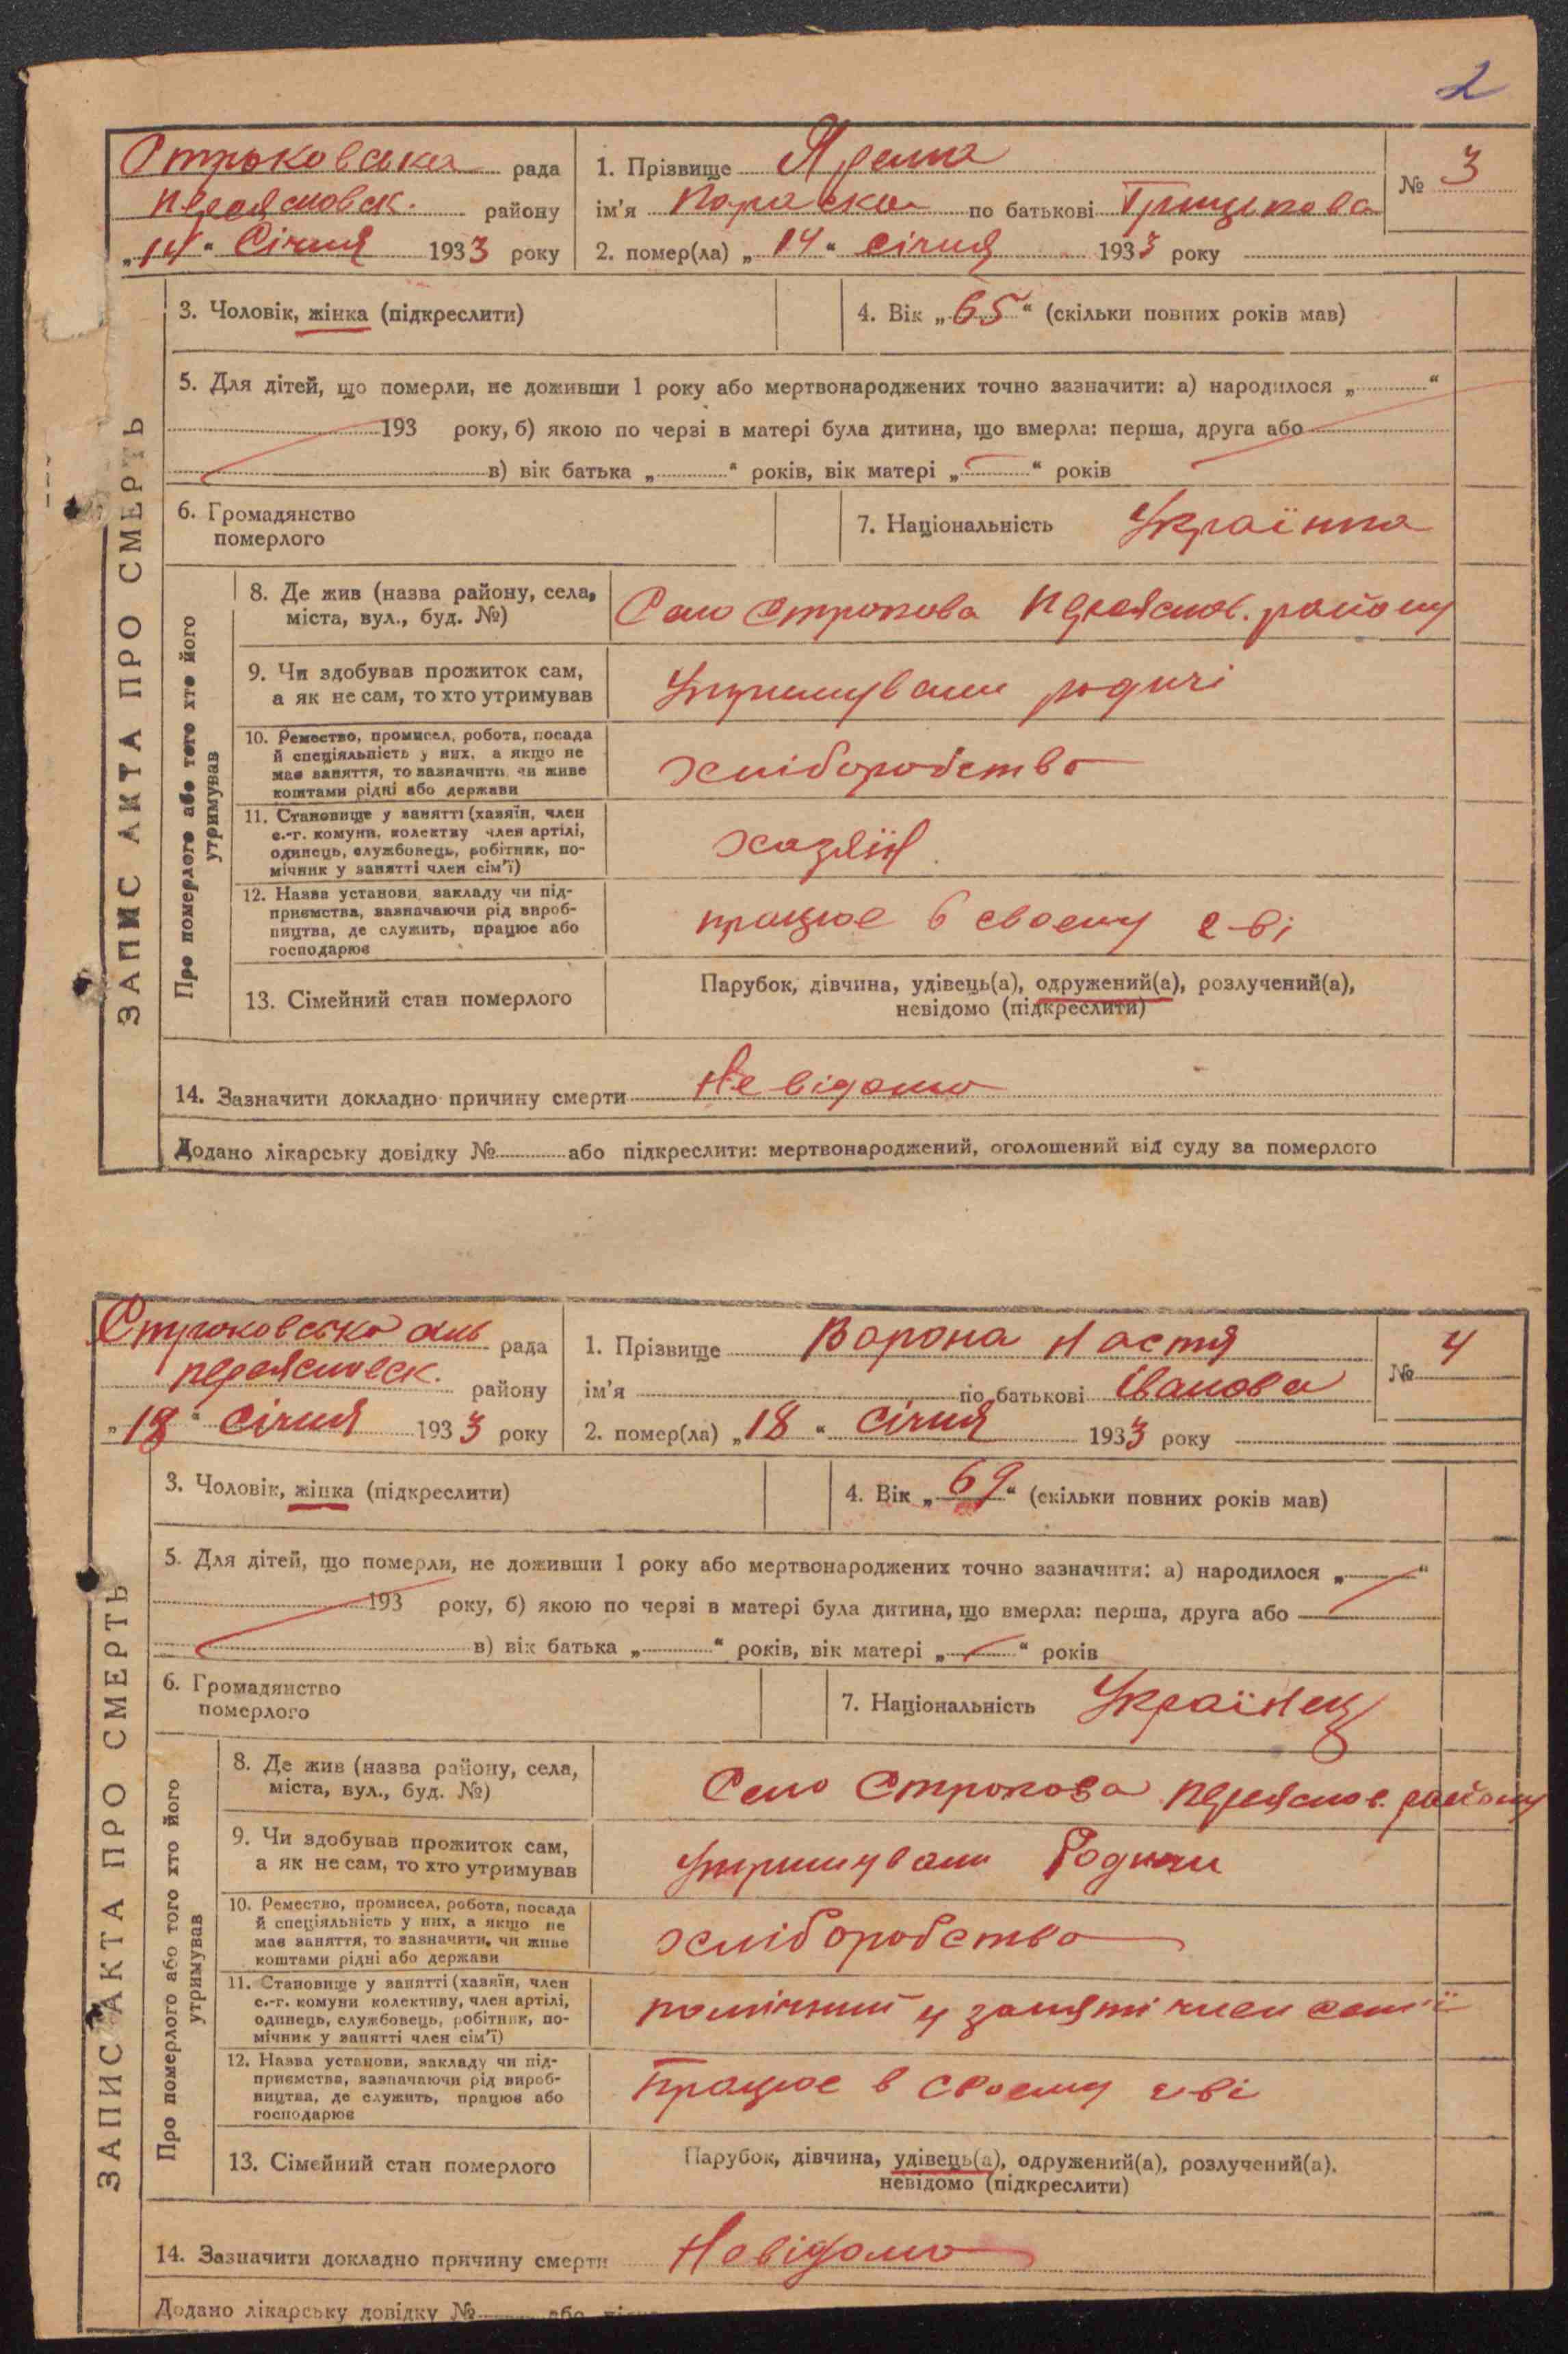 2
Строковська рада
Переяславск. району
„14“ Січня 1933 року
1. Прізвище Ярема
ім'я Параска по батькові Грицькова
2. помер(ла) „14“ січня 1933 року
№ 3
ЗАПИС АКТА ПРО СМЕРТЬ
3. Чоловік, жінка (підкреслити)
4. Вік „65“ (скільки повних років мав)
5. Для дітей, що померли, не доживши 1 року або мертвонароджених точно зазначити: а) народилося „ “
193 року, б) якою по черзі в матері була дитина, що вмерла: перша, друга або
в) вік батька „ “ років, вік матері „ “ років
6. Громадянство
померлого
7. Національність Українка
Про померлого або того хто його
утримував
8. Де жив (назва району, села,
міста, вул., буд. №)
Село Строкова Переяслов. району
9. Чи здобував прожиток сам,
а як не сам, то хто утримував
Утримували родичі
10. Ремество, промисел, робота, посада
й спеціяльність у них, а якщо не
має заняття, то зазначити, чи живе
коштами рідні або держави
хліборобство
11. Становище у занятті (хазяїн, член
с.-г. комуни, колективу член артілі,
одинець, службовець, робітник, по-
мічник у занятті член сім'ї)
хазяїн
12. Назва установи, закладу чи під-
приємства, зазначаючи рід вироб-
ництва, де служить, працює або
господарює
працює в своему г-ві
13. Сімейний стан померлого
Парубок, дівчина, удівець(а), одружений(а), розлучений(а),
невідомо (підкреслити)
14. Зазначити докладно причину смерти Не відомо
Додано лікарську довідку № або підкреслити: мертвонароджений, оголошений від суду за померлого
рада
Переяславск. району
„18“ Січня 1933 року
1. Прізвище Ворона Настя
ім'я по батькові Іванова
2. помер(ла) „18“ Січня 1933 року
№ 4
ЗАПИС АКТА ПРО СМЕРТЬ
3. Чоловік, жінка (підкреслити)
4. Вік „69“ (скільки повних років мав)
5. Для дітей, що померли, не доживши 1 року або мертвонароджених точно зазначити: а) народилося „ “
193 року, б) якою по черзі в матері була дитина, що вмерла: перша, друга або
в) вік батька „ “ років, вік матері „ “ років
6. Громадянство
померлого
7. Національність Українец
Про померлого або того хто його
утримував
8. Де жив (назва району, села,
міста, вул., буд. №)
Село Строкова Переяслов. району
9. Чи здобував прожиток сам,
а як не сам, то хто утримував
утримували Родичи
10. Ремество, промисел, робота, посада
й спеціяльність у них, а якщо не
має заняття, то зазначити, чи живе
коштами рідні або держави
хліборобство
11. Становище у занятті (хазяїн, член
с.-г. комуни колективу, член артілі,
одинець, службовець, робітник, по-
мічник у занятті член сім'ї)
помічний у заняті член сем'ї
12. Назва установи, закладу чи під-
приємства, зазначаючи рід вироб-
ництва, де служить, працює або
господарює
працює в своему г-ві
13. Сімейний стан померлого
Парубок, дівчина, удівець(а), одружений(а), розлучений(а),
невідомо (підкреслити)
14. Зазначити докладно причину смерти Невідомо
Додано лікарську довідку № або